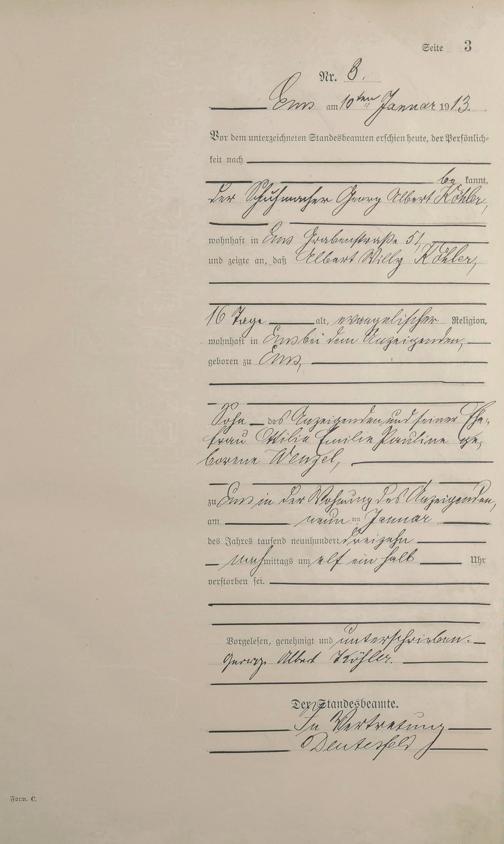 Seite 3
Nr. 8.
Ems am 10ten Januar 1913.
Vor dem unterzeichneten Standesbeamten erschien heute, der Persönlich-
keit nach
be kannt,
der Schuhmacher Georg Albert Köhler,
wohnhaft in Ems Grabenstraße 51,
und zeigte an, daß Albert Willy Köhler,
16 Tage alt, evangelischer Religion,
wohnhaft in Ems bei dem Anzeigenden,
geboren zu Ems,
Sohn des Anzeigenden und seiner Ehe-
frau Ottilie Emilie Pauline ge-
borene Wenzel,
zu Ems in der Wohnung des Anzeigenden,
am neun ten Januar
des Jahres tausend neunhundert dreizehn
nachmittags um elf ein halb Uhr
verstorben sei.
Vorgelesen, genehmigt und unterschrieben.
Georg Albert Köhler.
Der Standesbeamte.
In Vertretung
Form. C.